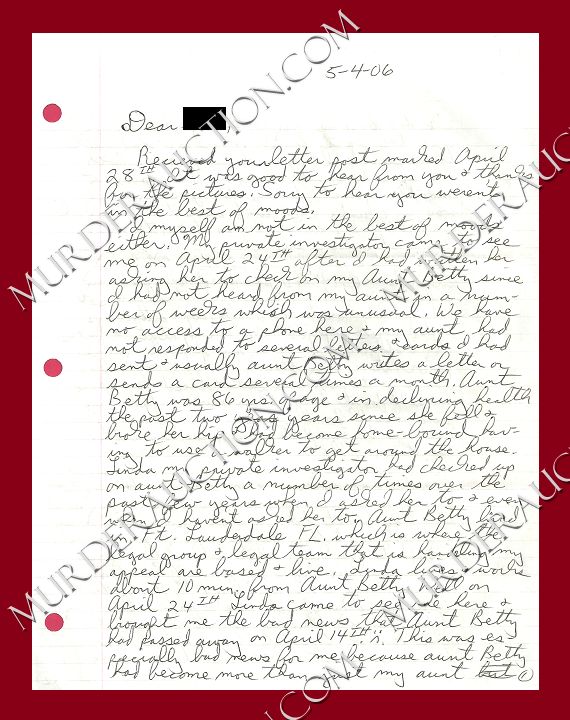 5-4-06
Dear
Recieved your letter post marked April
28TH. It was good to hear from you & thanks
for the pictures. Sorry to hear you weren't
in the best of moods.
I myself am not in the best of moods
either. My private investigator came to see
me on April 24TH after I had written her
asking her to check on my Aunt Betty since
I had not heard from my aunt in a num-
ber of weeks which was unusual. We have
no access to a phone here & my aunt had
not responded to several letters & cards I had
sent & usually aunt Betty writes a letter or
sends a card several times a month. Aunt
Betty was 86 yrs of age & in declining health
the past two years since she fell &
broke her hip & had become home-bound hav-
ing to use a walker to get around the house.
Linda my private investigator had checked up
on aunt Betty a number of times over the
past few years when I asked her to & even
when I haven't asked her to. Aunt Betty lived
in Ft. Lauderdale FL. which is where the
legal group & legal team that is handling my
appeal are based & live. Linda lives & works
about 10 min. from Aunt Betty. Well on
April 24TH Linda came to see me here &
brought me the bad news that Aunt Betty
had passed away on April 14TH. This was es-
pecially bad news for me because aunt Betty
had become more than just my aunt but
1
MURDERAUCTION.COM
MURDERAUCTION.COM
MURDERAUCTION.COM
MURDERAUCTION.COM
MURDERAUCTION.COM